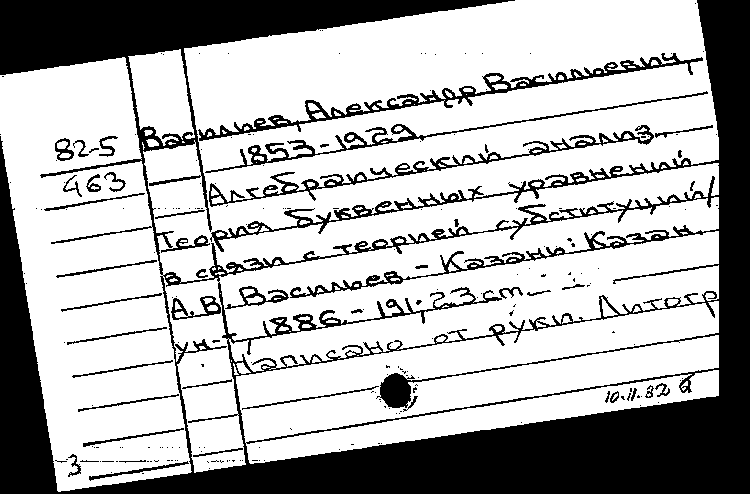 Васильев, Александр Васильевич,
82-5
1853-1929.
463
Алгебраический анализ.
Теория буквенных уравнений
в связи с теорией субституций/
А. В. Васильев. - Казань: Казан.
ун-т, 1886. - 191; 23 cm
Написано от руки. Литогр
10.11.82
3